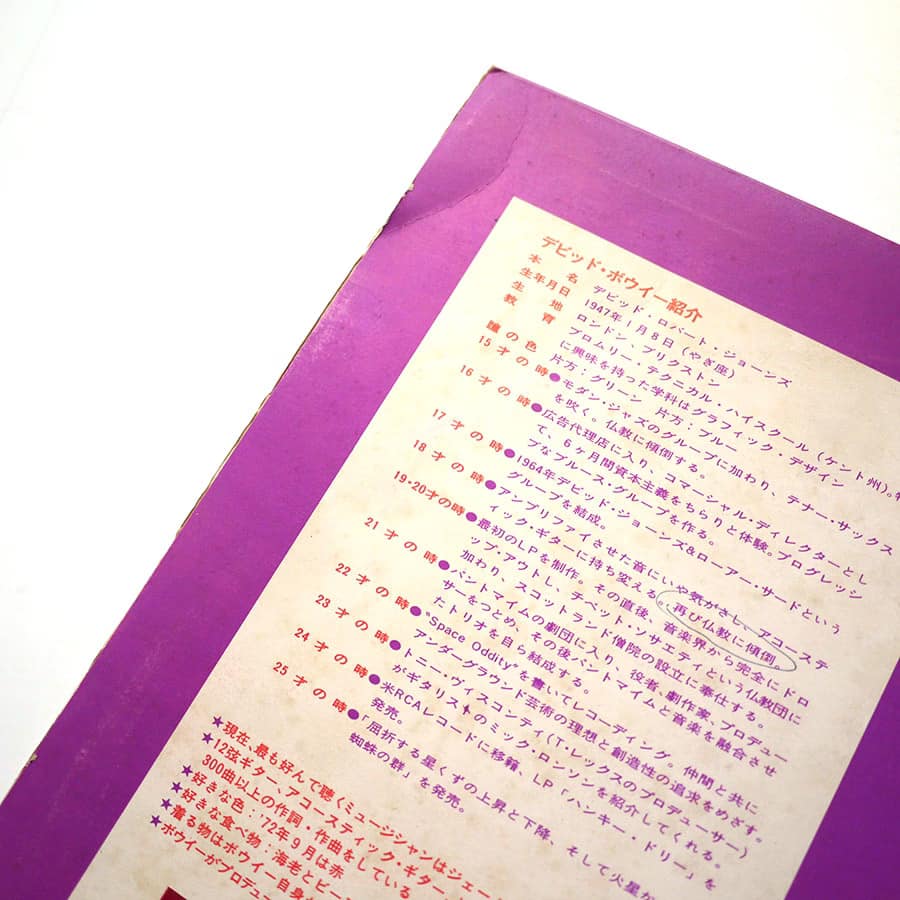 デビッド・ボウイー紹介
本名 デビッド・ロバート・ジョーンズ
生年月日 1947年1月8日(やぎ座)
生地 ロンドン、ブリクストン
教育 ブロムリー・テクニカル・ハイスクール(ケント州)。
に興味を持った学科はグラフィック・デザイン
瞳の色 片方:グリーン 片方:ブルー
15才の時●モダン・ジャズのグループに加わり、テナー・サックス
を吹く。仏教に傾倒する。
16才の時●広告代理店に入り、コマーシャル・ディレクターとし
て、6ヶ月間資本主義をちらりと体験。プログレッシ
ブなブルース・グループを作る。
17才の時●1964年デビッド・ジョーンズ&ローアー・サードという
グループを結成。
18才の時●アンプリファイさせた音にいや気がさし、アコーステ
ィック・ギターに持ち変える。再び仏教に傾倒。
19-20才の時●最初のLPを制作。その直後、音楽界から完全にドロ
ップ・アウトし、チベット・ソサエティという仏教団に
加わり、スコットランド僧院の設立に奉仕する。
21才の時●パントマイムの劇団に入り、役者、劇作家、プロデュー
サーをつとめ、その後パントマイムと音楽を融合させ
たトリオを自ら結成する。
22才の時●"Space Oddity"を書いてレコーディング。仲間と共に
アンダーグラウンド芸術の理想と創造性の追求をめざす。
23才の時●トニー・ヴィスコンティ(T・レックスのプロデューサー)
がギタリストのミック・ロンソンを紹介してくれる。
24才の時●米RCAレコードに移籍、LP「ハンキー・ドリー」を
発売。
25才の時●「屈折する星くずの上昇と下降、そして火星か
蜘蛛の群」を発売。
★現在、最も好んで聴くミュージシャンはジェー
★12弦ギター、アコースティック・ギター
300曲以上の作詞・作曲をしている
★好きな色:'72年9月は赤
★好きな食べ物:海老とビー
★着る物はボウイー自身
★ボウイーがプロデュ